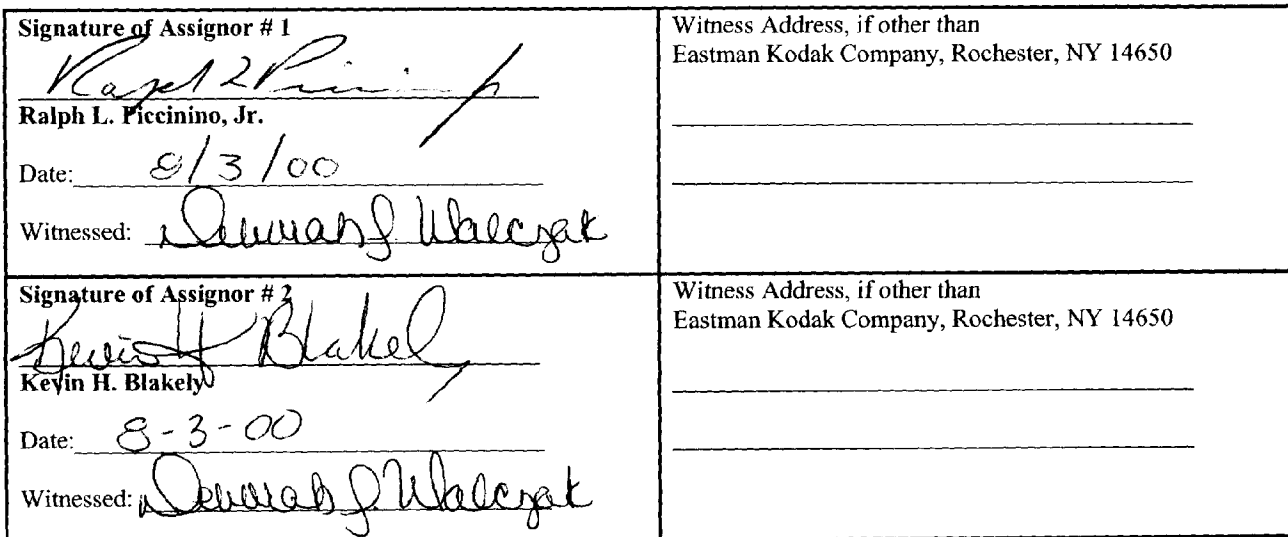 Signature of Assignor # 1
Ralph L Piccinino Jr
Ralph L. Piccinino, Jr.
Date: 8/3/00
Witnessed: Deborah J. Walczak
Witness Address, if other than
Eastman Kodak Company, Rochester, NY 14650
Signature of Assignor # 2
Kevin H Blakely
Kevin H. Blakely
Date: 8-3-00
Witnessed: Deborah J. Walczak
Witness Address, if other than
Eastman Kodak Company, Rochester, NY 14650